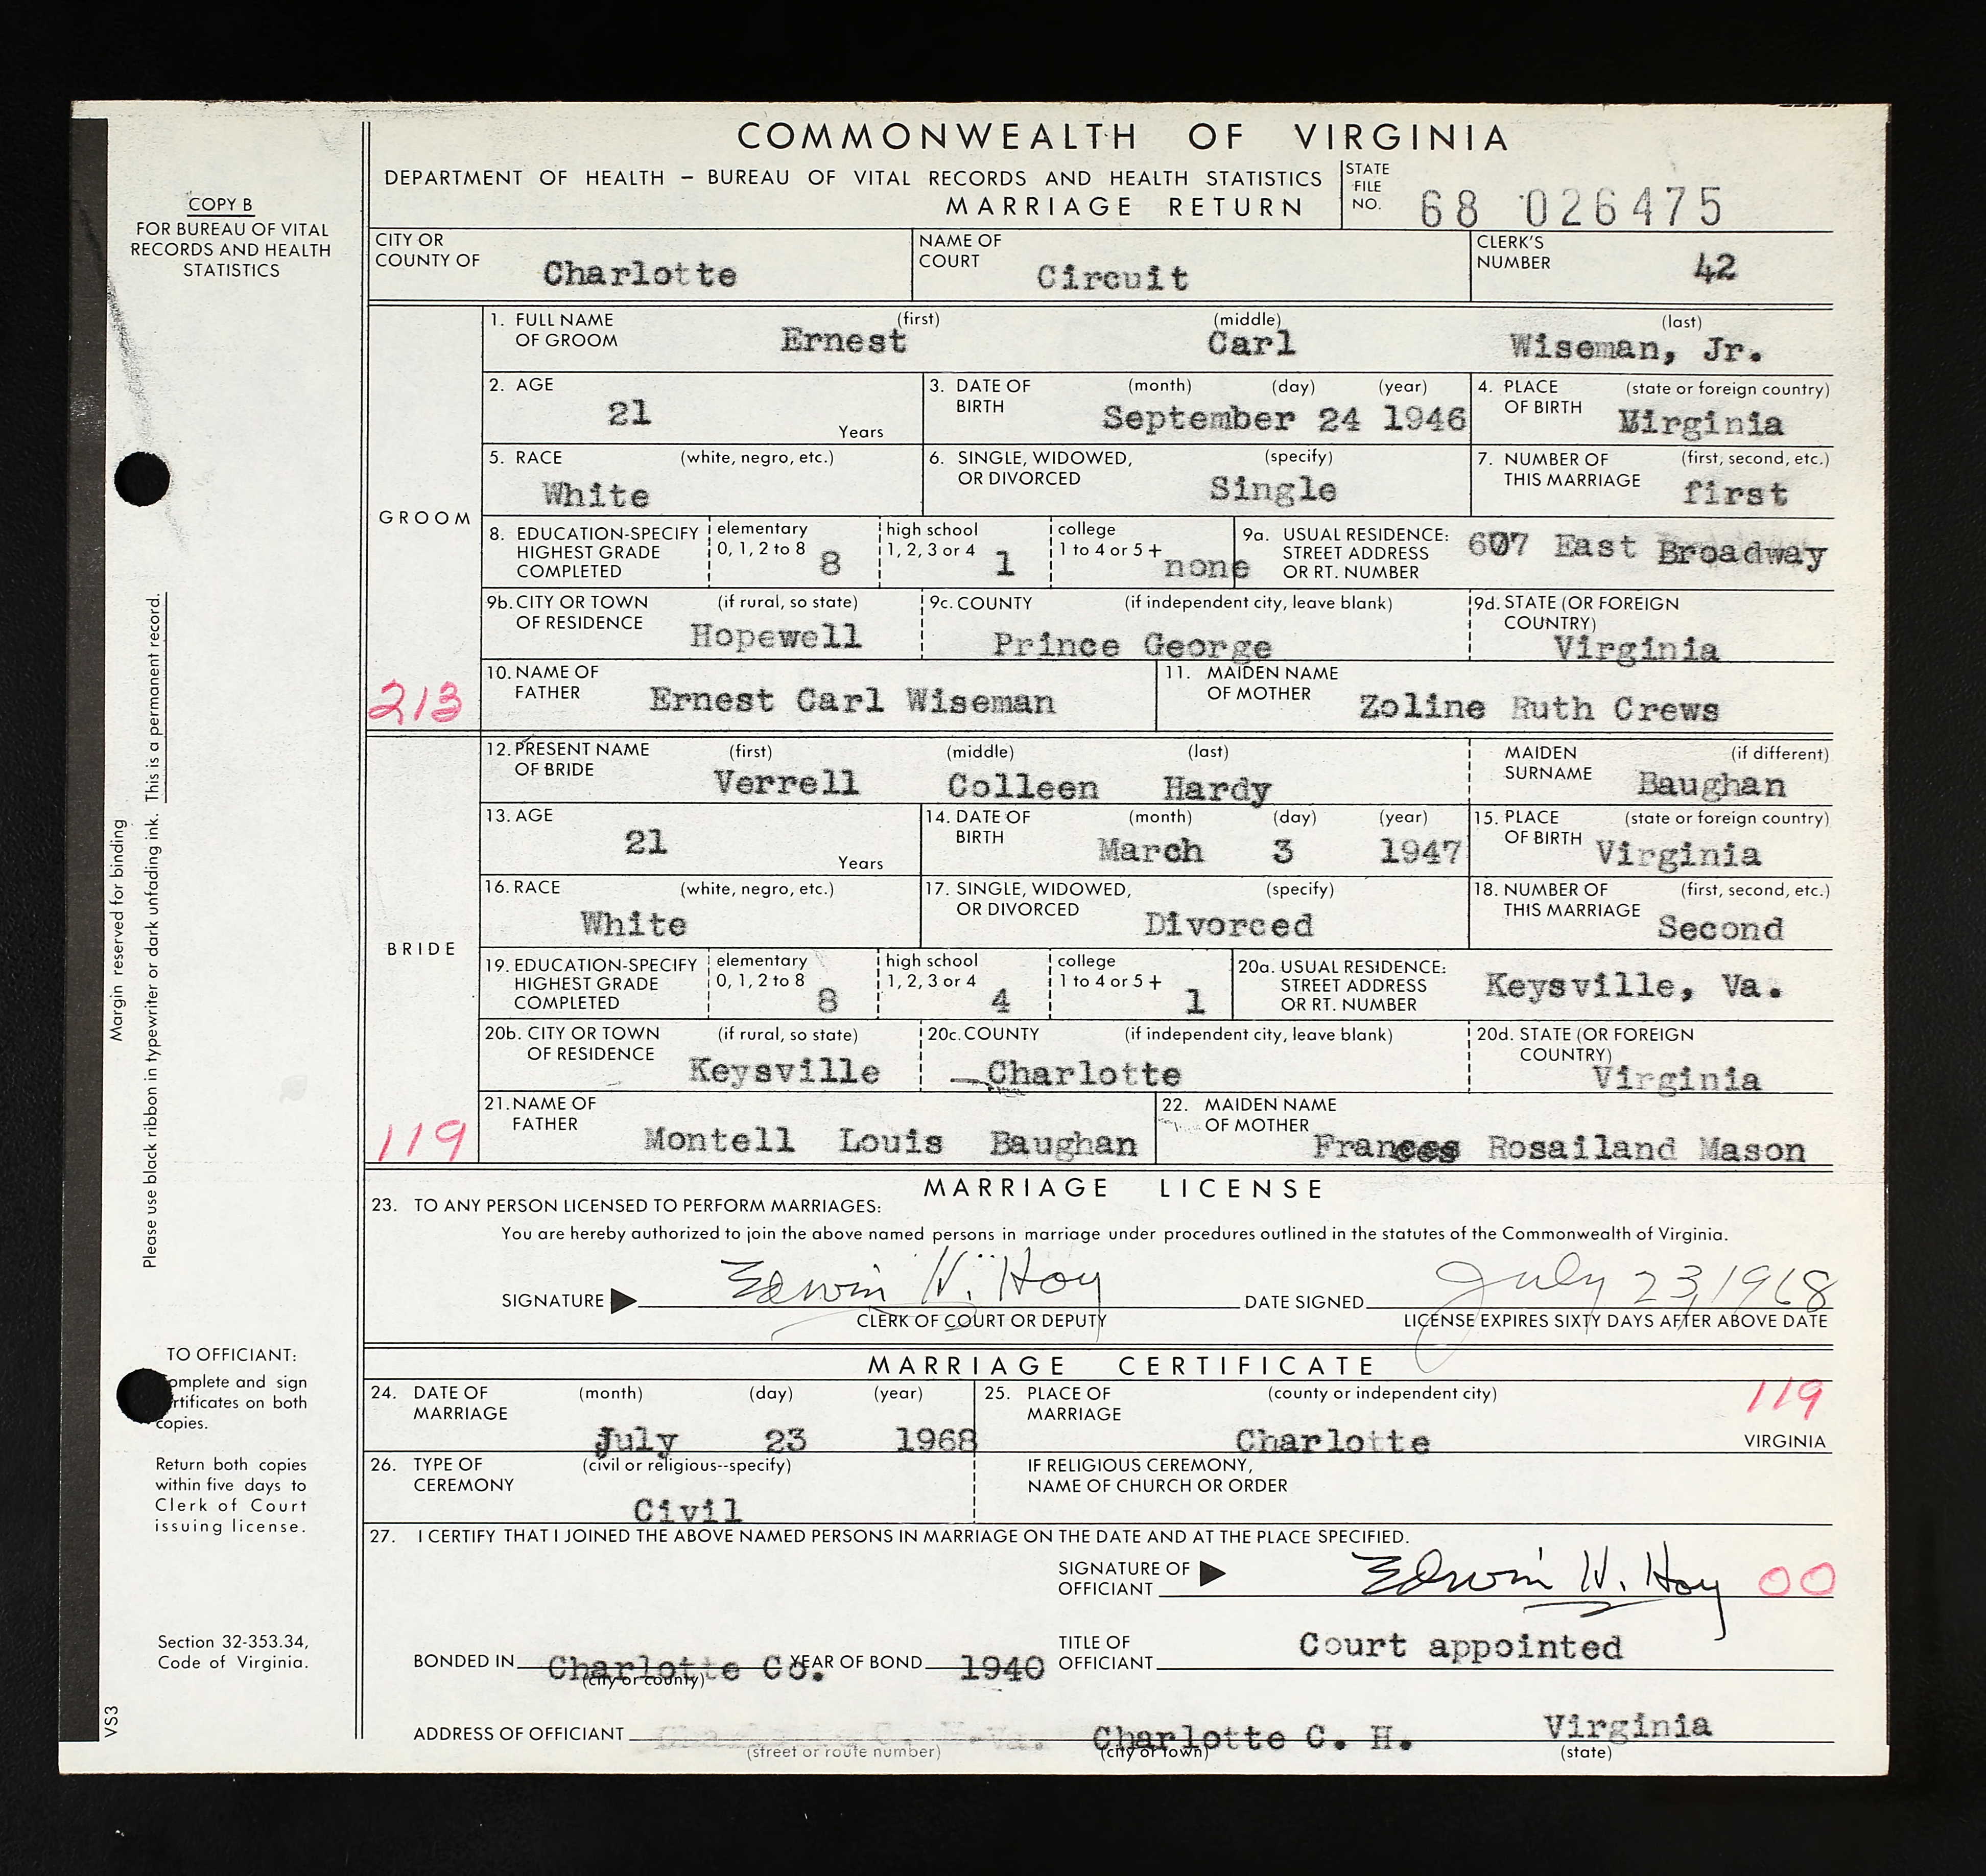 COMMONWEALTH OF VIRGINIA
DEPARTMENT OF HEALTH – BUREAU OF VITAL RECORDS AND HEALTH STATISTICS
MARRIAGE RETURN
STATE FILE NO. 68 026475
COPY B
FOR BUREAU OF VITAL
RECORDS AND HEALTH
STATISTICS
CITY OR COUNTY OF Charlotte
NAME OF COURT Circuit
CLERK'S NUMBER 42
GROOM
1. FULL NAME OF GROOM (first) Ernest (middle) Carl (last) Wiseman, Jr.
2. AGE 21 Years
3. DATE OF BIRTH (month) (day) (year) September 24 1946
4. PLACE OF BIRTH (state or foreign country) Virginia
5. RACE (white, negro, etc.) White
6. SINGLE, WIDOWED, OR DIVORCED (specify) Single
7. NUMBER OF THIS MARRIAGE (first, second, etc.) first
8. EDUCATION-SPECIFY HIGHEST GRADE COMPLETED elementary 0, 1, 2 to 8 8 high school 1, 2, 3 or 4 1 college 1 to 4 or 5+ none
9a. USUAL RESIDENCE: STREET ADDRESS OR RT. NUMBER 607 East Broadway
9b. CITY OR TOWN OF RESIDENCE (if rural, so state) Hopewell
9c. COUNTY (if independent city, leave blank) Prince George
9d. STATE (OR FOREIGN COUNTRY) Virginia
213
10. NAME OF FATHER Ernest Carl Wiseman
11. MAIDEN NAME OF MOTHER Zoline Ruth Crews
BRIDE
12. PRESENT NAME OF BRIDE (first) Verrell (middle) Colleen (last) Hardy
MAIDEN SURNAME (if different) Baughan
13. AGE 21 Years
14. DATE OF BIRTH (month) (day) (year) March 3 1947
15. PLACE OF BIRTH (state or foreign country) Virginia
16. RACE (white, negro, etc.) White
17. SINGLE, WIDOWED, OR DIVORCED (specify) Divorced
18. NUMBER OF THIS MARRIAGE (first, second, etc.) Second
19. EDUCATION-SPECIFY HIGHEST GRADE COMPLETED elementary 0, 1, 2 to 8 8 high school 1, 2, 3 or 4 4 college 1 to 4 or 5+ 1
20a. USUAL RESIDENCE: STREET ADDRESS OR RT. NUMBER Keysville, Va.
20b. CITY OR TOWN OF RESIDENCE (if rural, so state) Keysville
20c. COUNTY (if independent city, leave blank) Charlotte
20d. STATE (OR FOREIGN COUNTRY) Virginia
119
21. NAME OF FATHER Montell Louis Baughan
22. MAIDEN NAME OF MOTHER Frances Rosailand Mason
MARRIAGE LICENSE
23. TO ANY PERSON LICENSED TO PERFORM MARRIAGES:
You are hereby authorized to join the above named persons in marriage under procedures outlined in the statutes of the Commonwealth of Virginia.
SIGNATURE Edwin H. Hoy DATE SIGNED July 23, 1968
CLERK OF COURT OR DEPUTY LICENSE EXPIRES SIXTY DAYS AFTER ABOVE DATE
MARRIAGE CERTIFICATE
24. DATE OF MARRIAGE (month) (day) (year) July 23 1968
25. PLACE OF MARRIAGE (county or independent city) Charlotte 119 VIRGINIA
26. TYPE OF CEREMONY (civil or religious--specify) Civil
IF RELIGIOUS CEREMONY, NAME OF CHURCH OR ORDER
27. I CERTIFY THAT I JOINED THE ABOVE NAMED PERSONS IN MARRIAGE ON THE DATE AND AT THE PLACE SPECIFIED.
SIGNATURE OF OFFICIANT Edwin H. Hoy 00
BONDED IN Charlotte Co. (city or county) YEAR OF BOND 1940
TITLE OF OFFICIANT Court appointed
ADDRESS OF OFFICIANT (street or route number) Charlotte C. H. (city or town) Virginia (state)
Margin reserved for binding
Please use black ribbon in typewriter or dark unfading ink. This is a permanent record.
TO OFFICIANT:
omplete and sign
rtificates on both
copies.
Return both copies
within five days to
Clerk of Court
issuing license.
Section 32-353.34,
Code of Virginia.
VS3